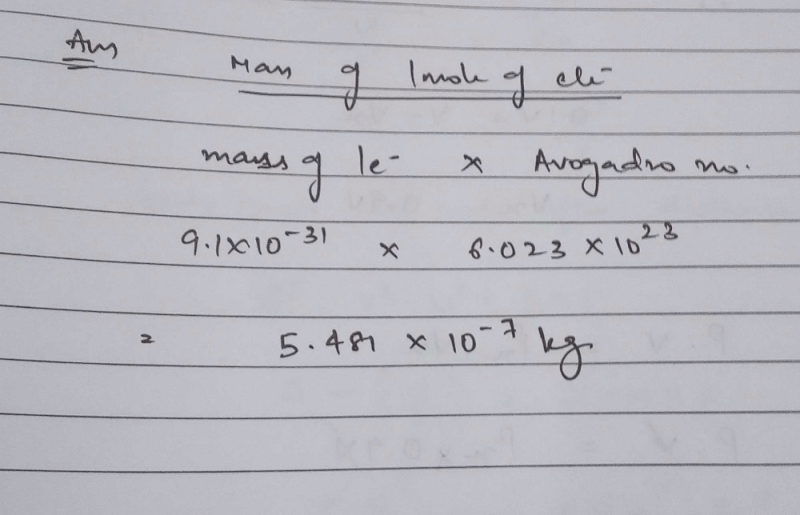 Ans
Mass of 1mole of ele-
mass of 1e- x Avogadro no.
9.1x10-31 x 6.023 x 1023
= 5.481 x 10-7 kg